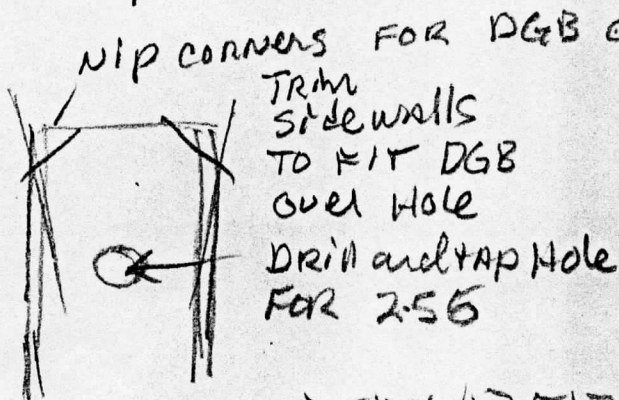 NIP CORNERS FOR DGB
TRIM
Sidewalls
TO FIT DGB
OVER HOLE
DRILL and TAP HOLE
FOR 2-56